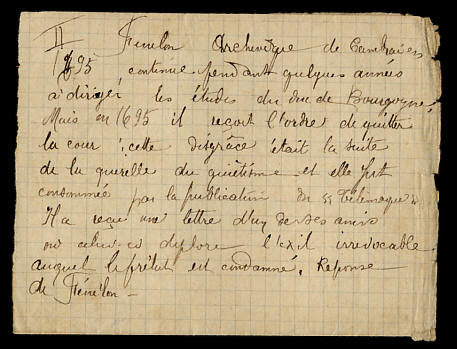 II Fénelon Archevêque de Cambrai en
1695, continue pendant quelques années
à diriger les études du duc de Bourgogne,
Mais en 1695 il reçoit l'ordre de quitter
la cour ; cette disgrâce était la suite
de la querelle du quiétisme et elle fut
consommée par la publication du "Télémaque"
Il a reçu une lettre d'un de ses amis
où celui-ci déplore l'exil irrévocable
auquel le prélat est condamné. Réponse
de Fénélon -